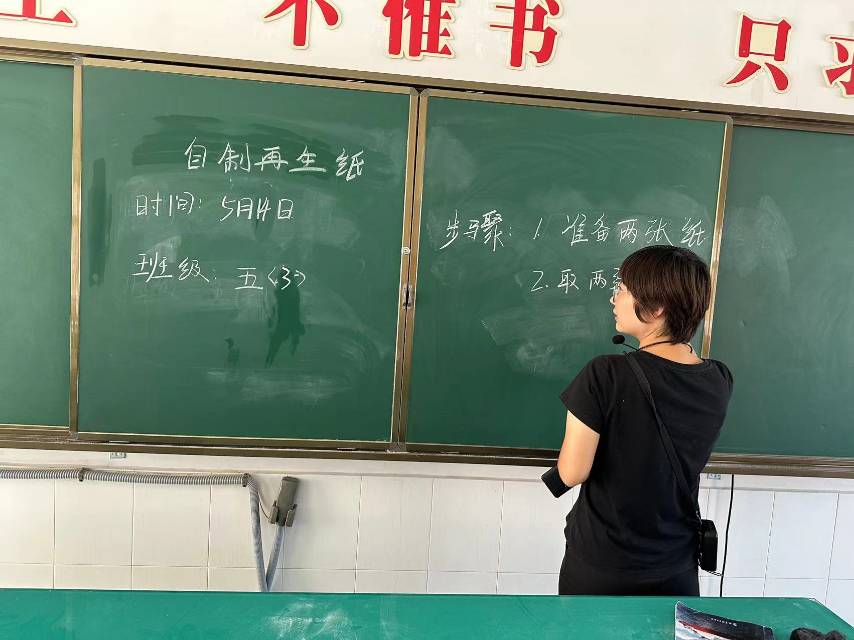 不惟书 只
自制再生纸
时间：5月14日
班级：五（3）
步骤：1. 准备两张纸
2. 取两